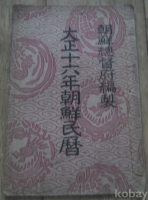 朝鮮總督府編製
大正十六年朝鮮民暦
kobay